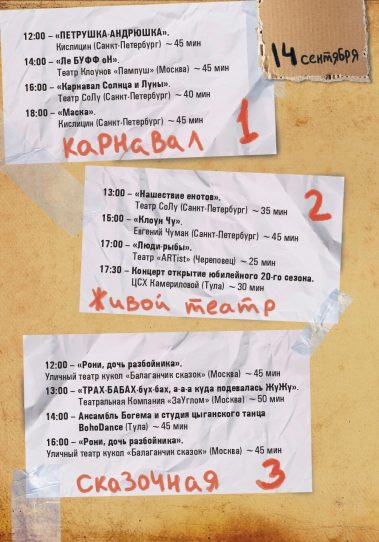 14 сентября
12:00 – «ПЕТРУШКА-АНДРЮШКА».
Кислицин (Санкт-Петербург) ~ 45 мин
14:00 – «Ле БУФФ оН».
Театр Клоунов «Пампуш» (Москва) ~ 45 мин
16:00 – «Карнавал Солнца и Луны».
Театр СоЛу (Санкт-Петербург) ~ 40 мин
18:00 – «Маска».
Кислицин (Санкт-Петербург) ~ 45 мин
Карнавал 1
13:00 – «Нашествие енотов».
Театр СоЛу (Санкт-Петербург) ~ 35 мин
15:00 – «Клоун Чу».
Евгений Чуман (Санкт-Петербург) ~ 45 мин
17:00 – «Люди-рыбы».
Театр «ARTист» (Череповец) ~ 25 мин
17:30 – Концерт открытие юбилейного 20-го сезона.
ЦСХ Камериловой (Тула) ~ 30 мин
2
Живой театр
12:00 – «Рони, дочь разбойника».
Уличный театр кукол «Балаганчик сказок» (Москва) ~ 45 мин
13:00 – «ТРАХ-БАБАХ-бух-бах, а-а-а куда подевалась ЖуЖу».
Театральная Компания «ЗаУглом» (Москва) ~ 50 мин
14:00 – Ансамбль Богема и студия цыганского танца
BohoDance (Тула) ~ 45 мин
16:00 – «Рони, дочь разбойника».
Уличный театр кукол «Балаганчик сказок» (Москва) ~ 45 мин
Сказочная 3